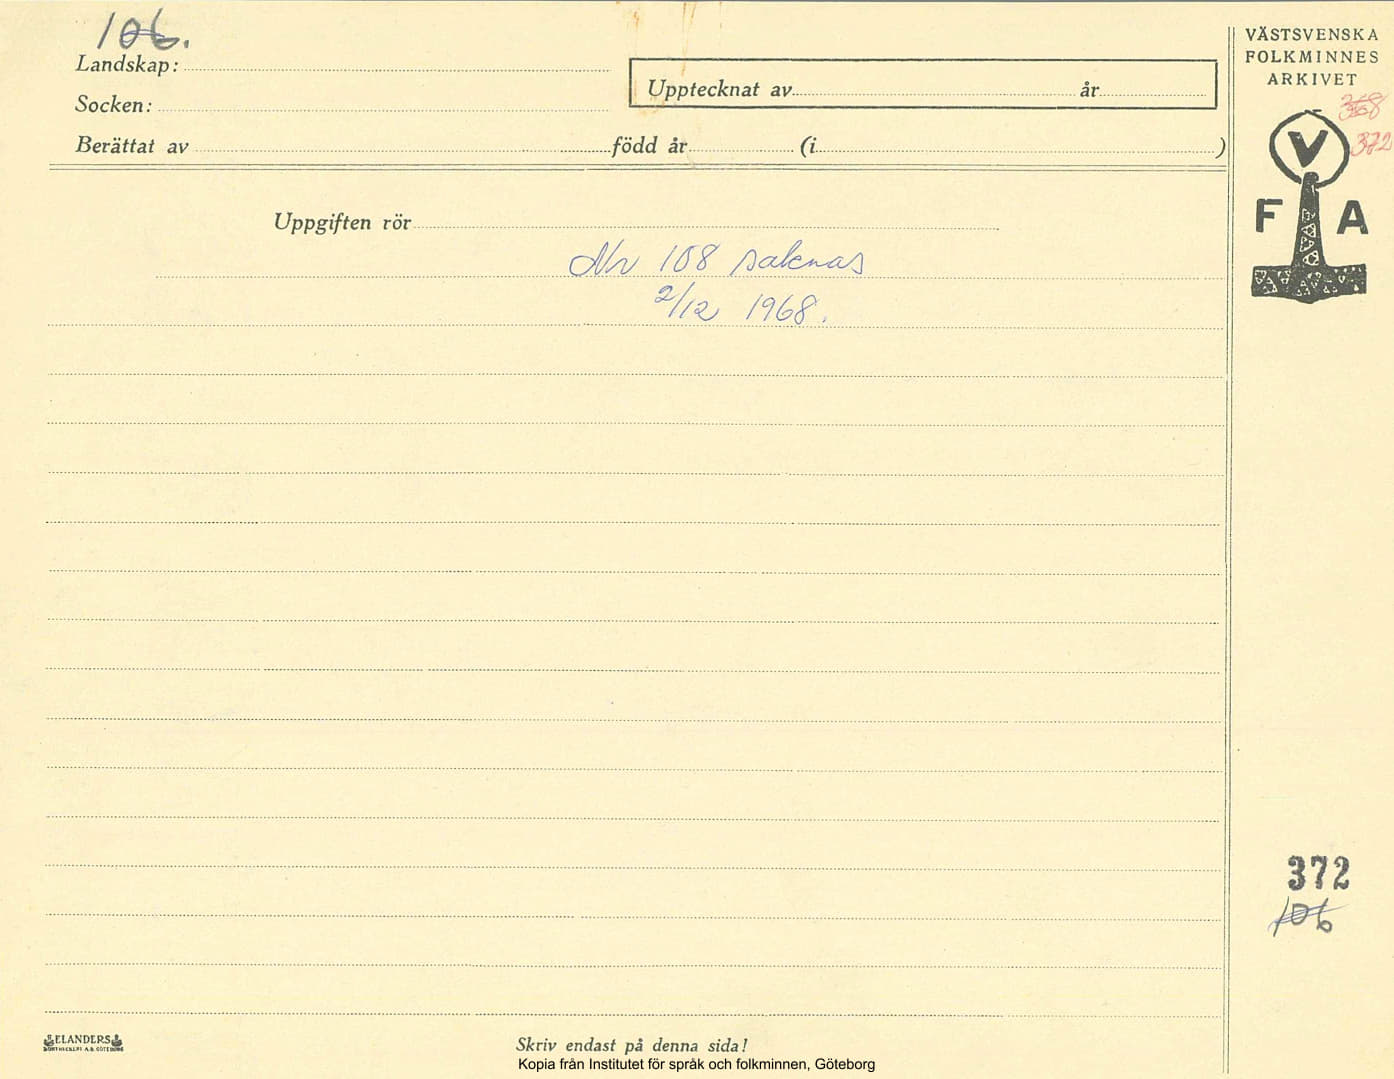 106.
Landskap:
Socken:
Upptecknat av år
Berättat av född år (i )
Uppgiften rör
Nr 108 saknas
2/12 1968.
VÄSTSVENSKA
FOLKMINNES
ARKIVET
368
372
V
F A
372
106
ELANDERS
Skriv endast på denna sida!
Kopia från Institutet för språk och folkminnen, Göteborg